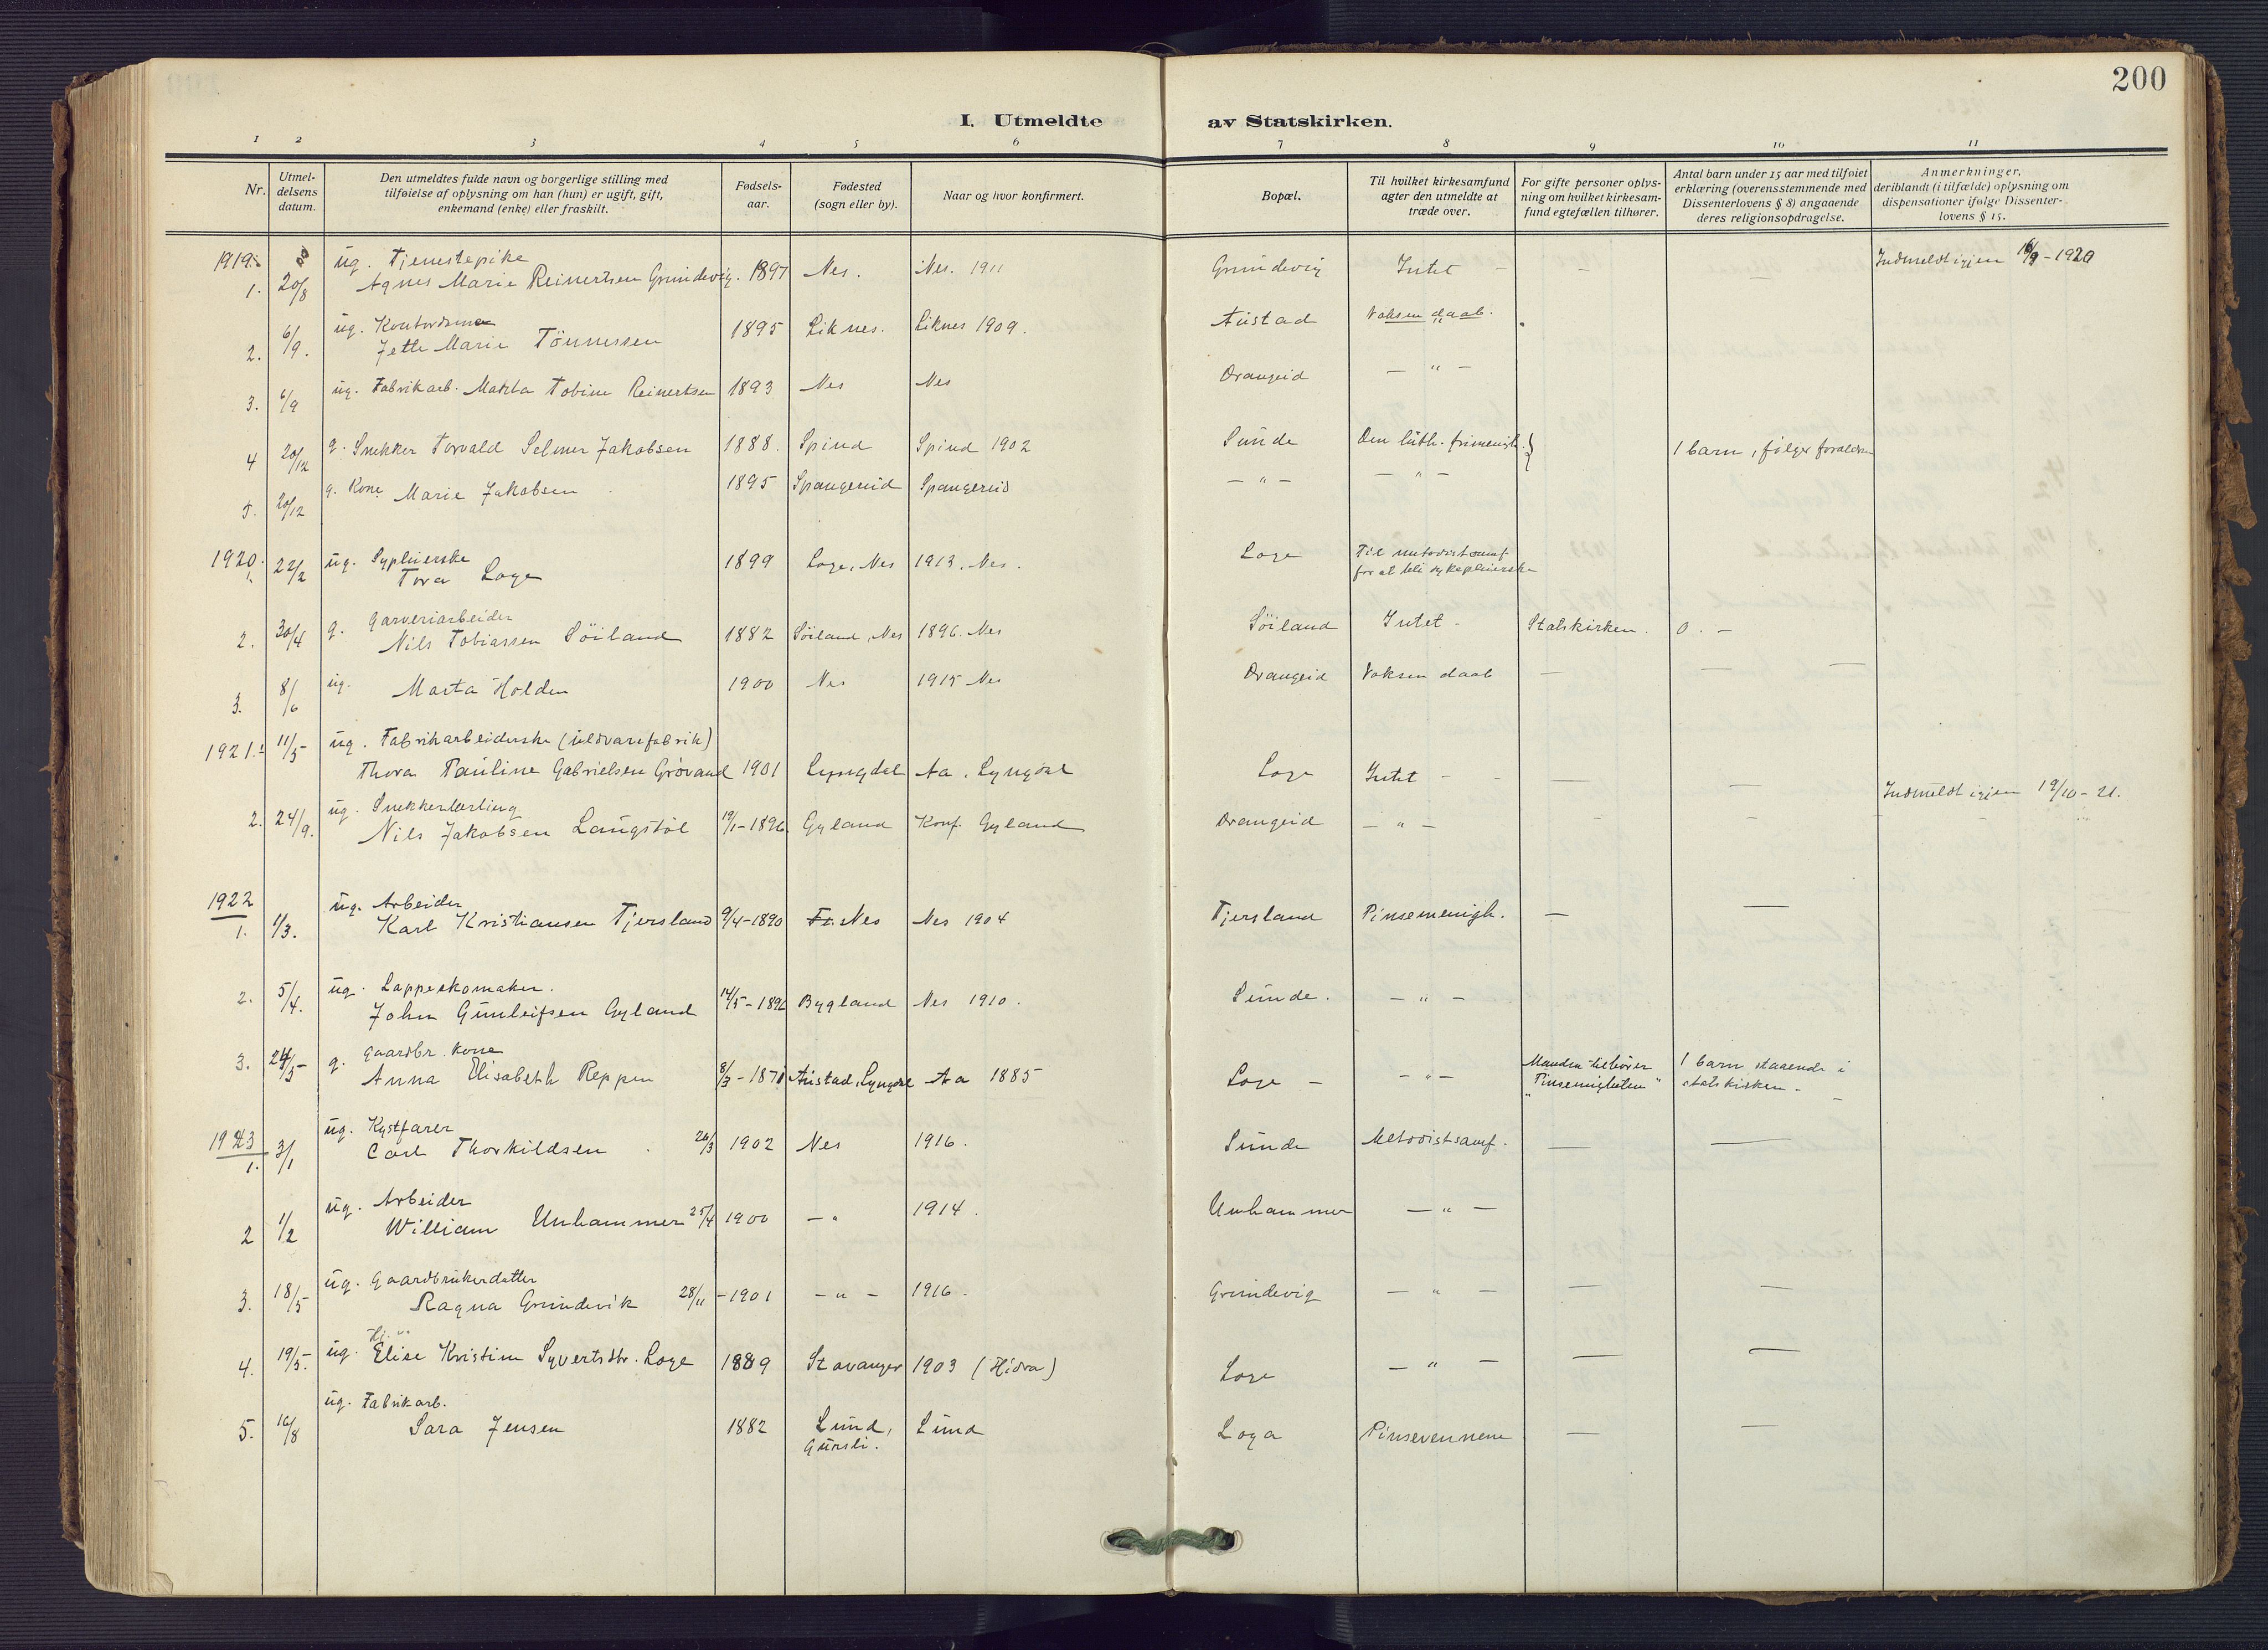 200
I. Utmeldte av Statskirken.
1 2 3 4 5 6 7 8 9 10 11
Nr.
Utmel-
delsens
datum.
Den utmeldtes fulde navn og borgerlige stilling med
tilføielse af oplysning om han (hun) er ugift, gift,
enkemand (enke) eller fraskilt.
Fødsels-
aar.
Fødested
(sogn eller by).
Naar og hvor konfirmert.
Bopæl.
Til hvilket kirkesamfund
agter den utmeldte at
træde over.
For gifte personer oplys-
ning om hvilket kirkesam-
fund egtefællen tilhører.
Antal barn under 15 aar med tilføiet
erklæring (overensstemmende med
Dissenterlovens § 8) angaaende
deres religionsopdragelse.
Anmerkninger,
deriblandt (i tilfælde) oplysning om
dispensationer ifølge Dissenter-
lovens § 15.
1919.
ug. Tjenestepike
1. 20/8 Agnes Marie Reinertsen Grundevig. 1897 Nes. Nes. 1911 Grundevig Intet - - - Indmeldt igjen 16/9 - 1920
ug.
2. 6/9. Jette Marie Tönnessen 1895 Liknes. Liknes 1909. Austad Voksen daab.
3. 6/9 ug. Fabrikarb. Tobine Reinertsen 1893 Nes Nes Drangeid - " -
4 20/12 g. Snekker Torvald Selmer Jakobsen 1888. Spind Spind 1902 Sunde Den luth. frimenigh. 1 barn, følger forældrene
5. 20/12 g. Kone Marie Jakobsen 1895 Spangereid Spangereid - " - - " -
1920.
ug. Sypleierske
1. 22/2 Tora Loge 1899 Loge, Nes 1913. Nes. Loge Til metodistsamf.
for at bli sykepleierske
g. Garveriarbeider
2. 30/4 Nils Tobiassen Söiland 1882 Söiland, Nes 1896. Nes Söiland Intet - Statskirken. 0. -
3. 8/6 ug. Marta Holden 1900 Nes 1915 Nes Drangeid Voksen daab - - -
1921. 1 11/5 ug. Fabrikarbeiderske (uldvarefabrik)
Thora Pauline Gabrielsen Grövand 1901 Lyngdal Aa, Lyngdal Loge Intet - - - - Indmeldt igjen 19/10 - 21.
ug. Snekkerlærling
2. 24/9. Nils Jakobsen Laugstöl 19/1 - 1896 Gyland Konf. Gyland Drangeid - " - - -
1922
ug. Arbeider
1. 1/3. Karl Kristiansen Tjersland 9/4 - 1890 Nes Nes 1904 Tjersland Pinsemenigh. - -
ug. Lappeskomaker.
2. 5/4. John Gunleifsen Gyland 14/5 - 1896 Bygland Nes 1910. Sunde. - " -
g. Gaardbr. kone
3. 24/5 Anna Elisabeth Reppen 8/3 - 1871 Austad, Lyngdal Aa 1885 Loge - - " - Manden tilhører
"Pinsemigheten" 1 barn staaende i
statskirken -
1923
ug. Kystfarer
1. 3/1 Carl Thorkildsen 26/3 1902 Nes 1916. Sunde Metodistsamf. - -
ug. Arbeider
2 1/2 William Unhammer 25/4 1900 - " 1914. Unhammer - " -
ug. Gaardbrukerdatter
3. 18/5 Ragna Grundevik 28/11 - 1901 - " - 1916. Grundevig - " - - -
4. 19/5. ug. Elise Kristine Syvertsdtr. Loge 1889 Stavanger 1903 (Hidra) Loge - " - - -
ug. Fabrikarb.
5. 16/8 Sara Jensen 1882 Lund, Lund Loga Pinsevennene - -
Gursli.